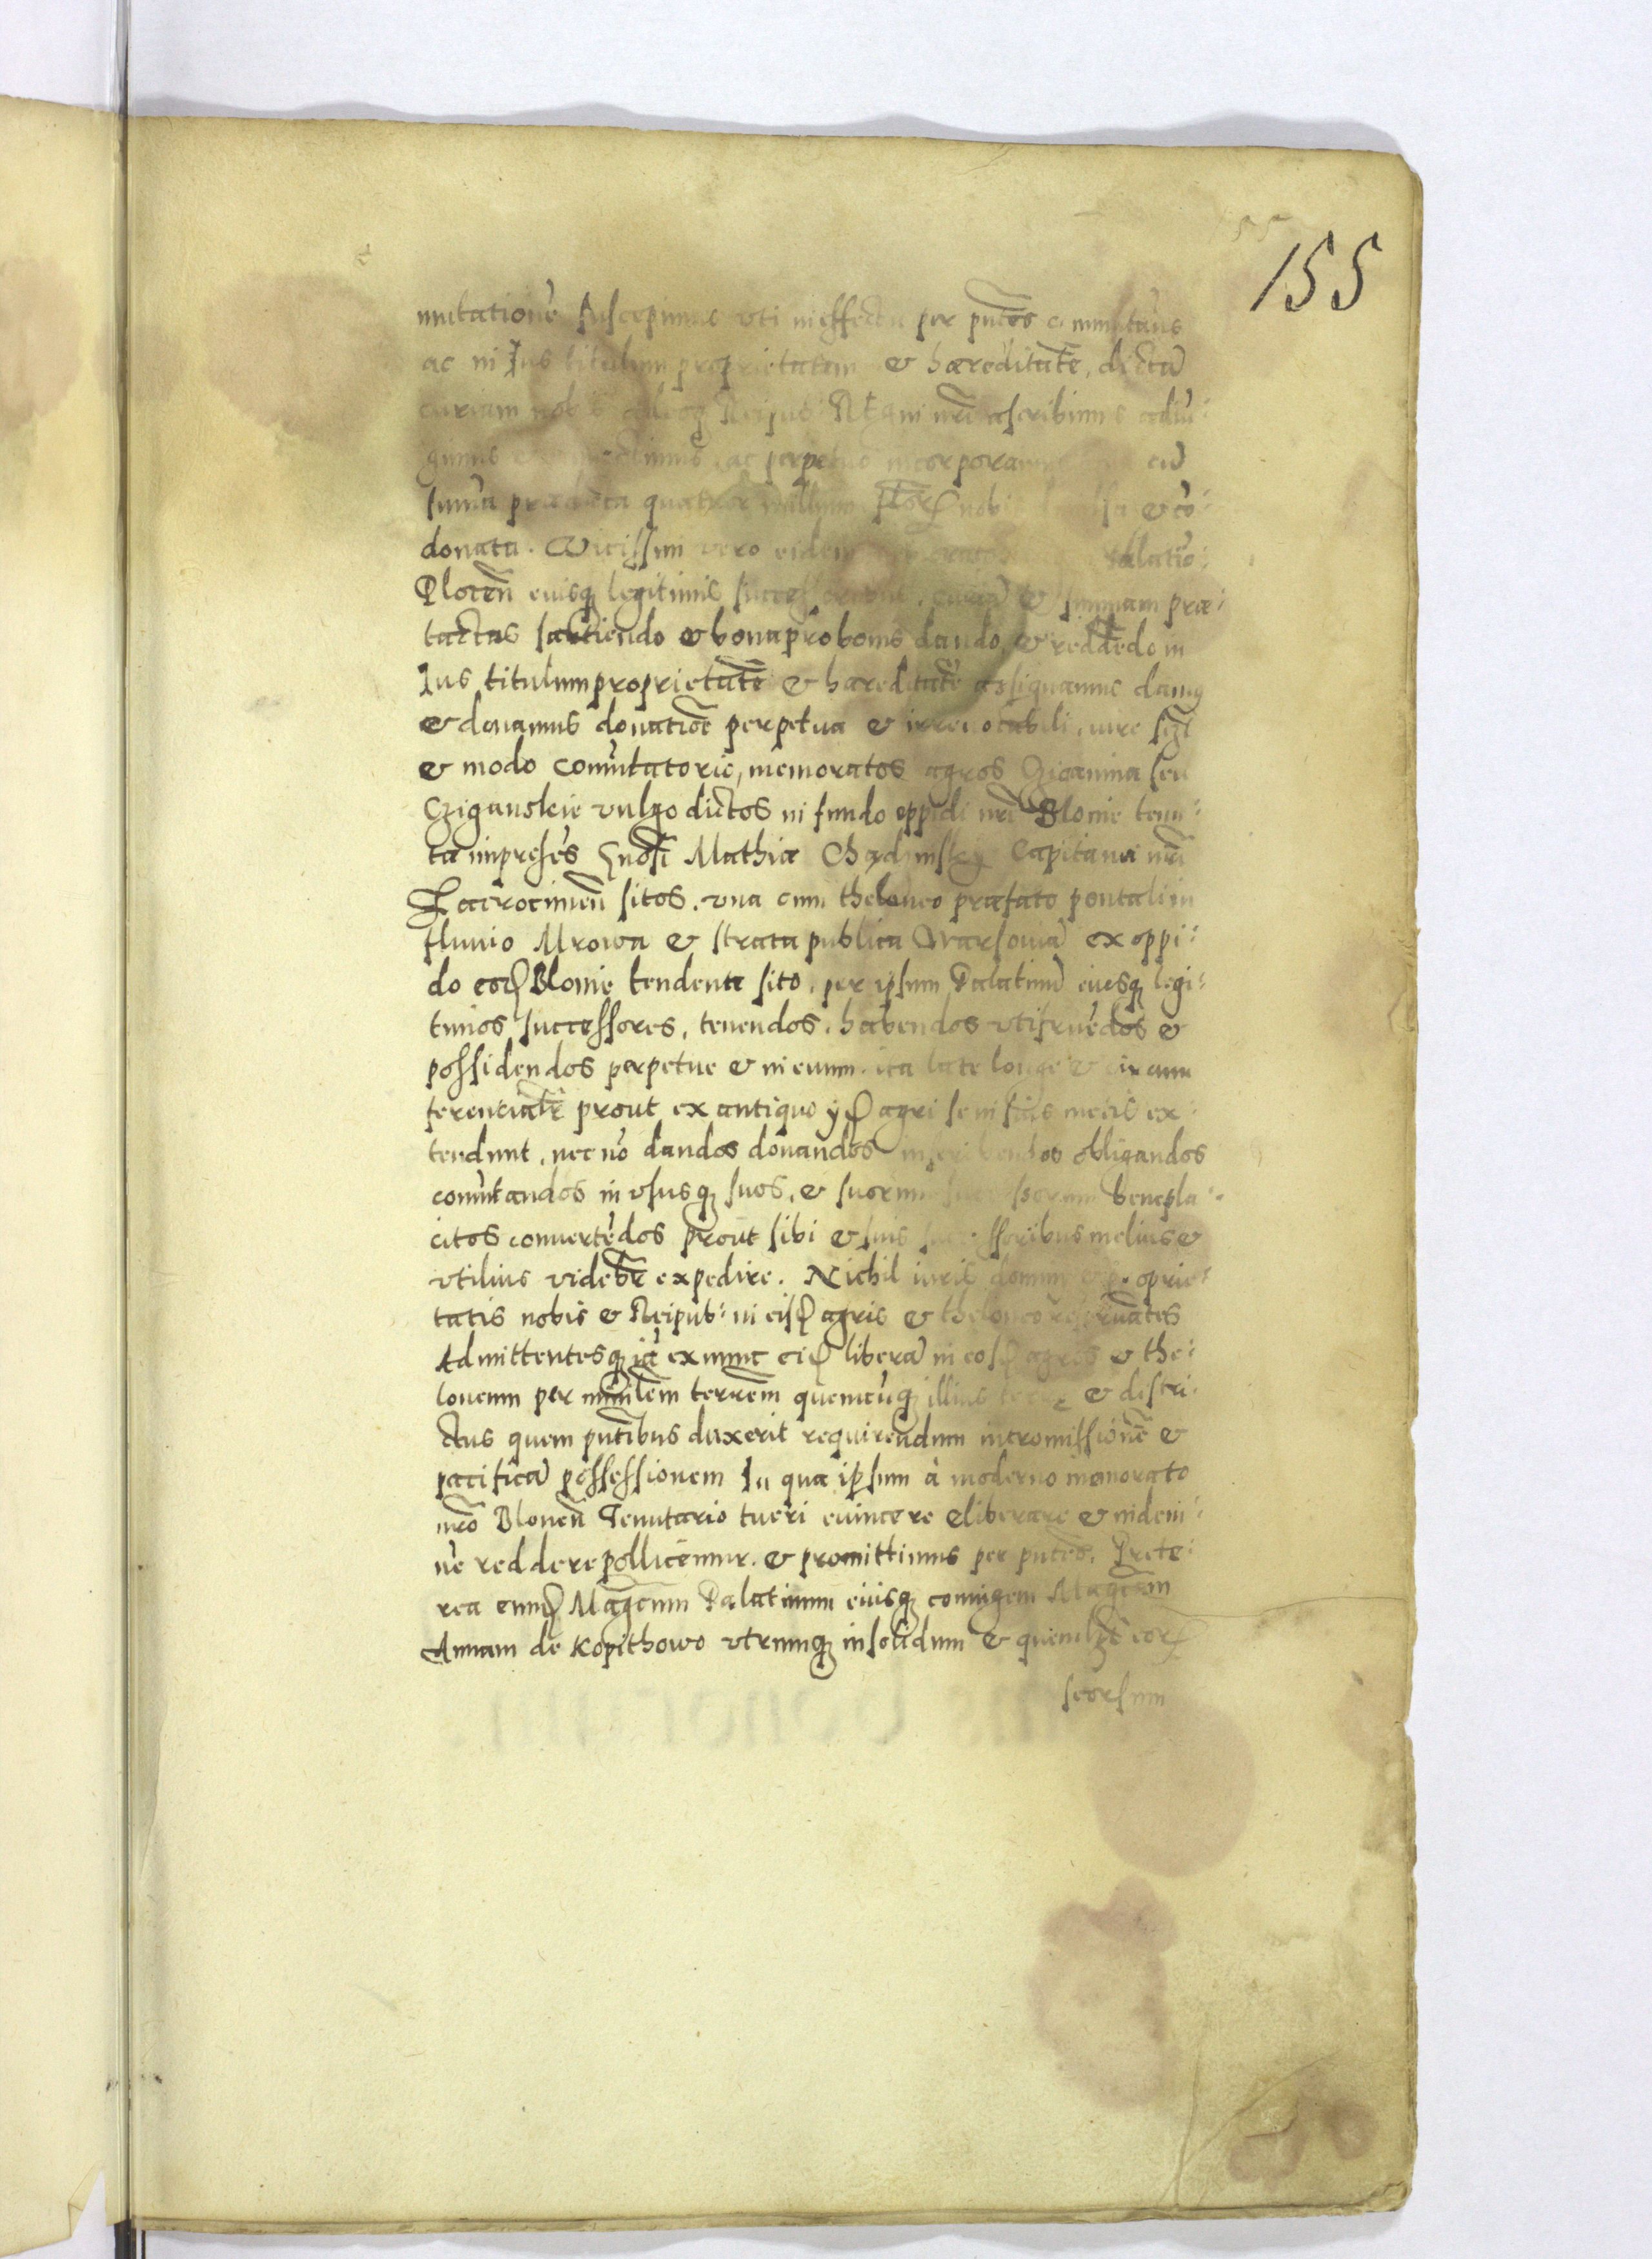 155
mutationē suscepimus uti in effectu per pn̄tes commutam̄us
ac in Ius titulum proprietatem & hæreditatē, dictā
curiam nobis Reipub: Regni nr̄i ascribimus adiu:
gimus ac perpetuo incorporamus cū
sum̄a prædicta quatuor millium nobis & cō:
donata. Vicissim vero eidem Palatio:
Plocen̄ eiusq; legitimis successoribus, curiā & summam præ:
tactas sartiendo & bona pro bonis dando, & reddēdo in
Ius titulum proprietatē & hæreditatē assignamus damus
& donamus donatiōe perpetua & irrevocabili, iure
& modo comūtatorio, memoratos agros Cziganina seu
Cziganskie vulgo dictos in fundo oppidi nr̄i Blonie tenu:
ta in præsēs Mathiæ Capitanei nr̄i
Zacrocimen̄ sitos, una cum theloneo præfato pontali in
fluvio Mrowa & strata publica Warsoviā ex oppi:
do eod Blonie tendente sito, per ipsum Palatinū eiusq; legi:
timos successores, tenendos, habendos utifruēdos &
possidendos perpetue & in evum, ita late longe & circum
ferencialr̄ prout ex antiquo ijd agri se in suis metis ex:
tendunt, nec nō dandos donandos inscribendos obligandos
comūtandos in usus q; suos, & suorum successorum benepla:
citos convertēdos prout sibi & suis successoribus melius &
utilius videbr̄ expedire. Nichil iuris dominij & proprie:
tatis nobis & Reipub: in eisd agris & theloneo reservātes
Admittentesq; iā ex nunc eid liberā in eosd agros & the:
loneum per terrēm quemcūq; illius terræ & distri:
ctus quem pn̄tibus duxerit requirendum intromissionē &
pacificā possessionem In qua ipsum à moderno memorato
nr̄o Blonen̄ Tenutario tueri evincere eliberare & indem:
nē reddere pollicemur. & promittimus per pn̄tes. Prete:
rea eund Magcum Palatinum eiusq; coniugem Magcam
Annam de Kopithowo utrumq; in solidum & quemlibet eor
seorsum